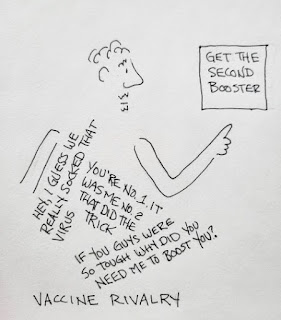 GET THE
SECOND
BOOSTER
HEY, I GUESS WE
REALLY SOCKED THAT
VIRUS
YOU'RE NO. 1. IT
WAS ME NO. 2
THAT DID THE
TRICK
IF YOU GUYS WERE
SO TOUGH WHY DID YOU
NEED ME TO BOOST YOU?
VACCINE RIVALRY